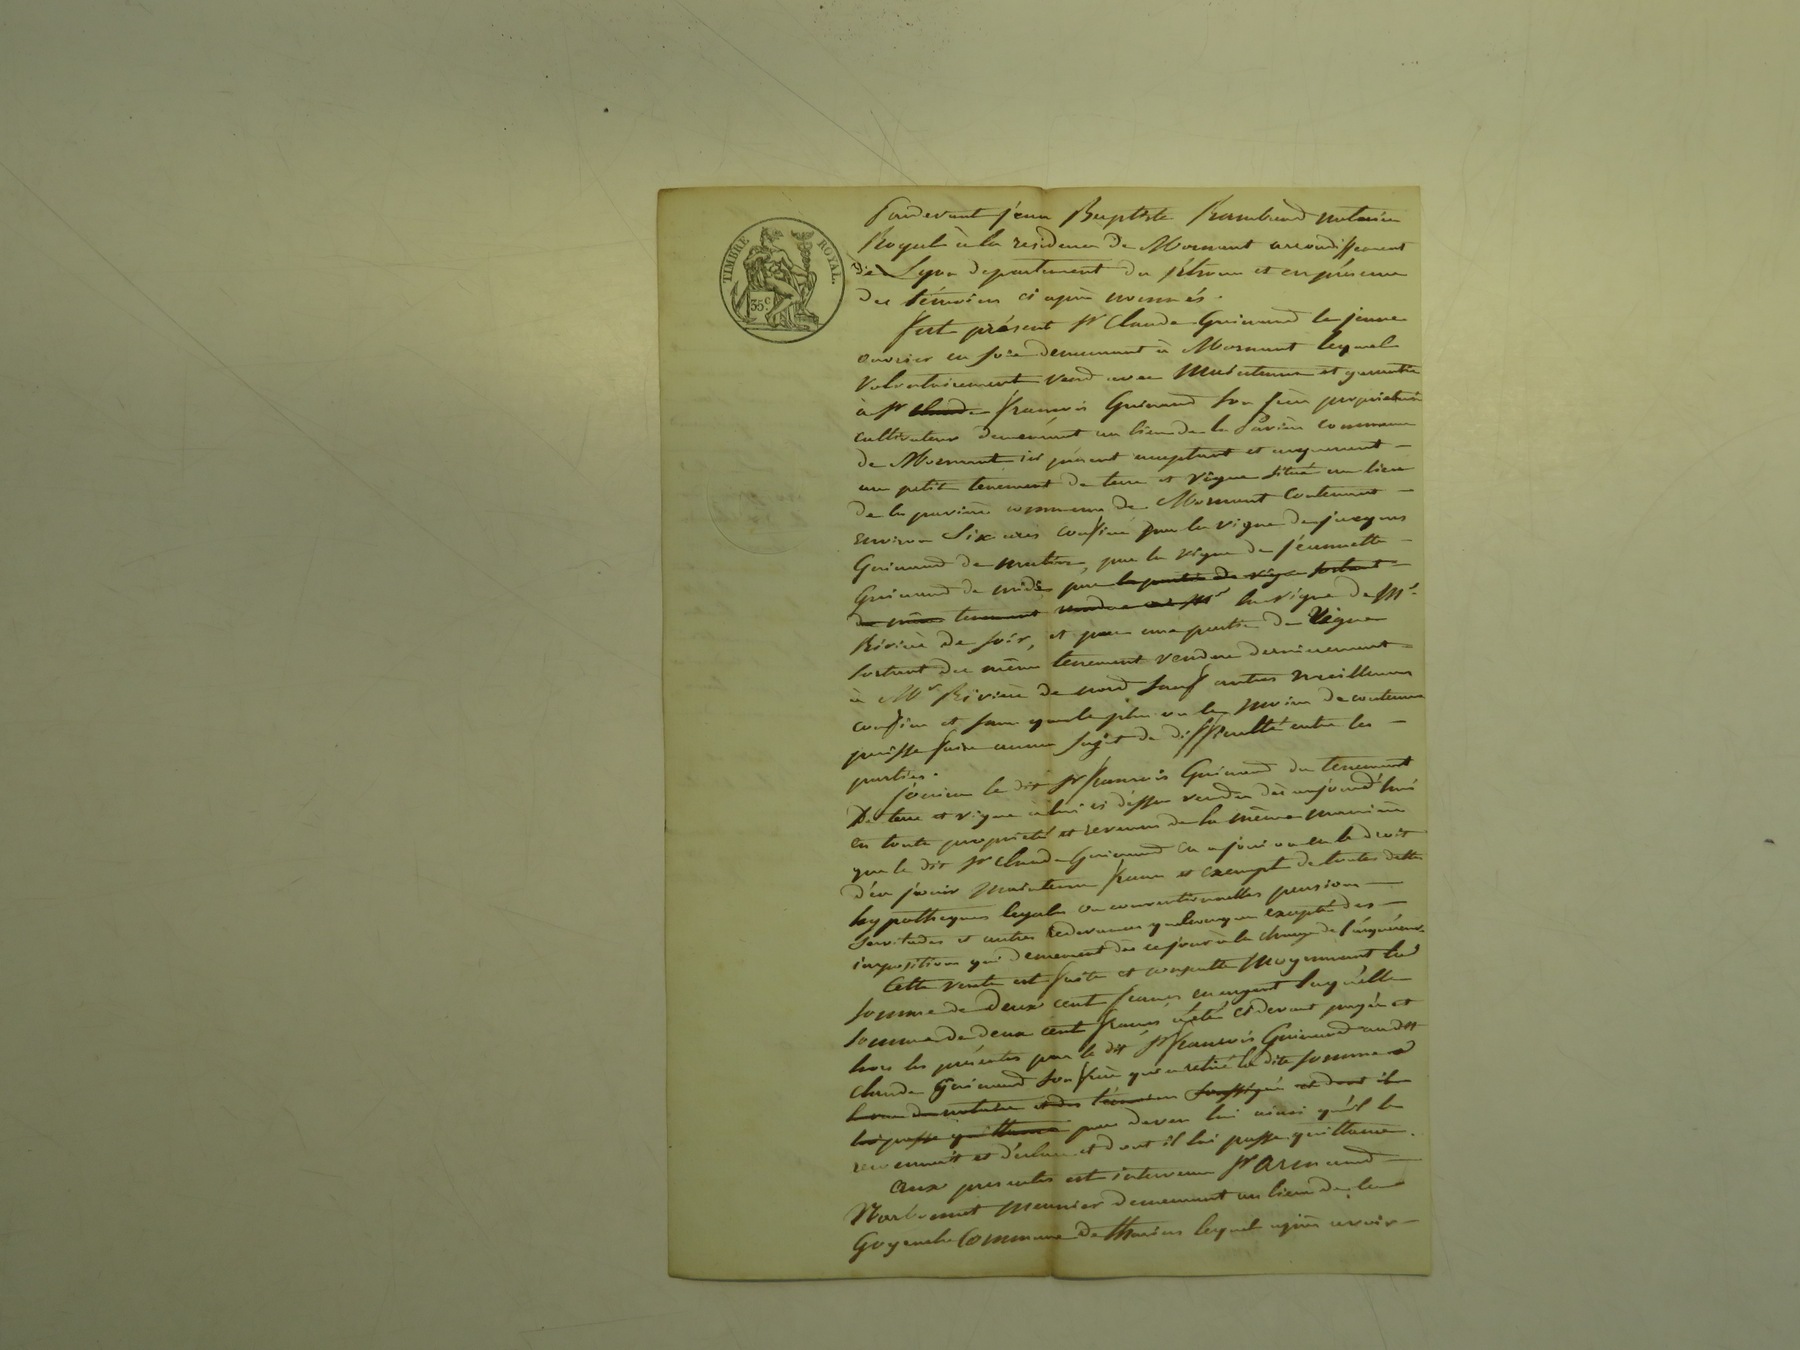 TIMBRE ROYAL.
35 c.
Pardevant jean Baptiste Rambaud notaire
Royal à la residence de Mornant arrondissement
de Lyon departement du rhone et en présence
des témoins ci après nommés.
fut présent Sr Claude Guinand le jeune
ouvrier en soie demeurant à Mornant lequel
volontairement vend avec maintenue et garantie
à Sr Claude francois Guinand son frère propriétaire
cultivateur demeurant au lieu de la commune
de Mornant ici présent acceptant et acquerant
un petit tenement de terre et vigne situé au lieu
de la commune de Mornant Contenant
environ Six ares confiné par la vigne de jacques
Guinand de matin, par la vigne de jeannette
Guinand de midi par la partie de vigne sortant
du même tenement vendue à Mr la vigne de Mr
Rivière de soir, et par une partie de vigne
sortant du même tenement vendue dernierement
à Mr Rivière de nord sauf autres meilleurs
confins et sans que le plus ou le moins de contenue
puisse faire aucun sujet de difficulté entre les
parties.
jouira le dit Sr francois Guinand du tenement
De terre et vigne à lui ci dessus vendu dès aujourd'hui
en toute propriété et revenus de la même manière
que le dit Sr Claude Guinand en a joui ou eu le droit
d'en jouir maintenu franc et exempt de toutes dettes
hypotheques legales ou conventionnelles pensions
servitudes et autres redevances quelconques excepté des
impositions qui demeurent dès ce jour à la charge de l'acquéreur.
Cette vente est faite et moyennant la
somme de deux cent francs en argent laquelle
somme de deux cent francs a été ci devant payée et
hors les présentes par le dit Sr francois Guinand au dit
Claude Guinand son frère qui a retiré la dite somme
à vue du notaire et des témoins soussignés et dont il
lui passe quittance par devers lui ainsi qu'il le
reconnait et déclare et dont il lui passe quittance.
Aux presentes est intervenu Sr Armand
meunier demeurant au lieu de
Commune de lequel après avoir